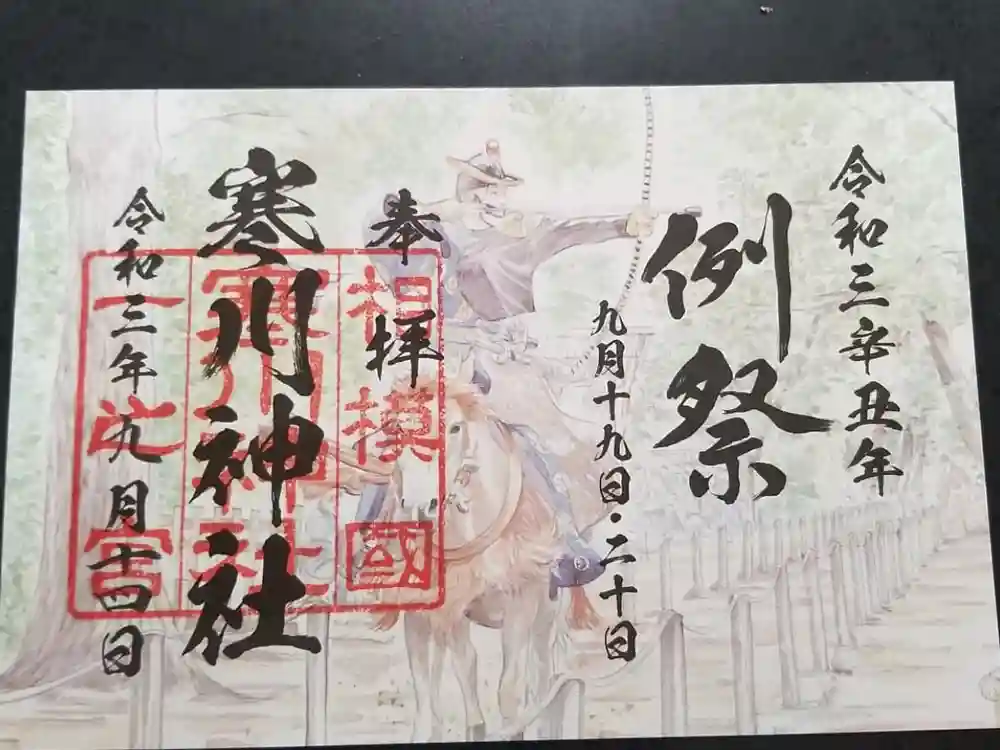 令和三辛丑年
例祭
九月十九日・二十日
奉拝
寒川神社
令和三年九月十四日
相模國
寒川神社
一之宮